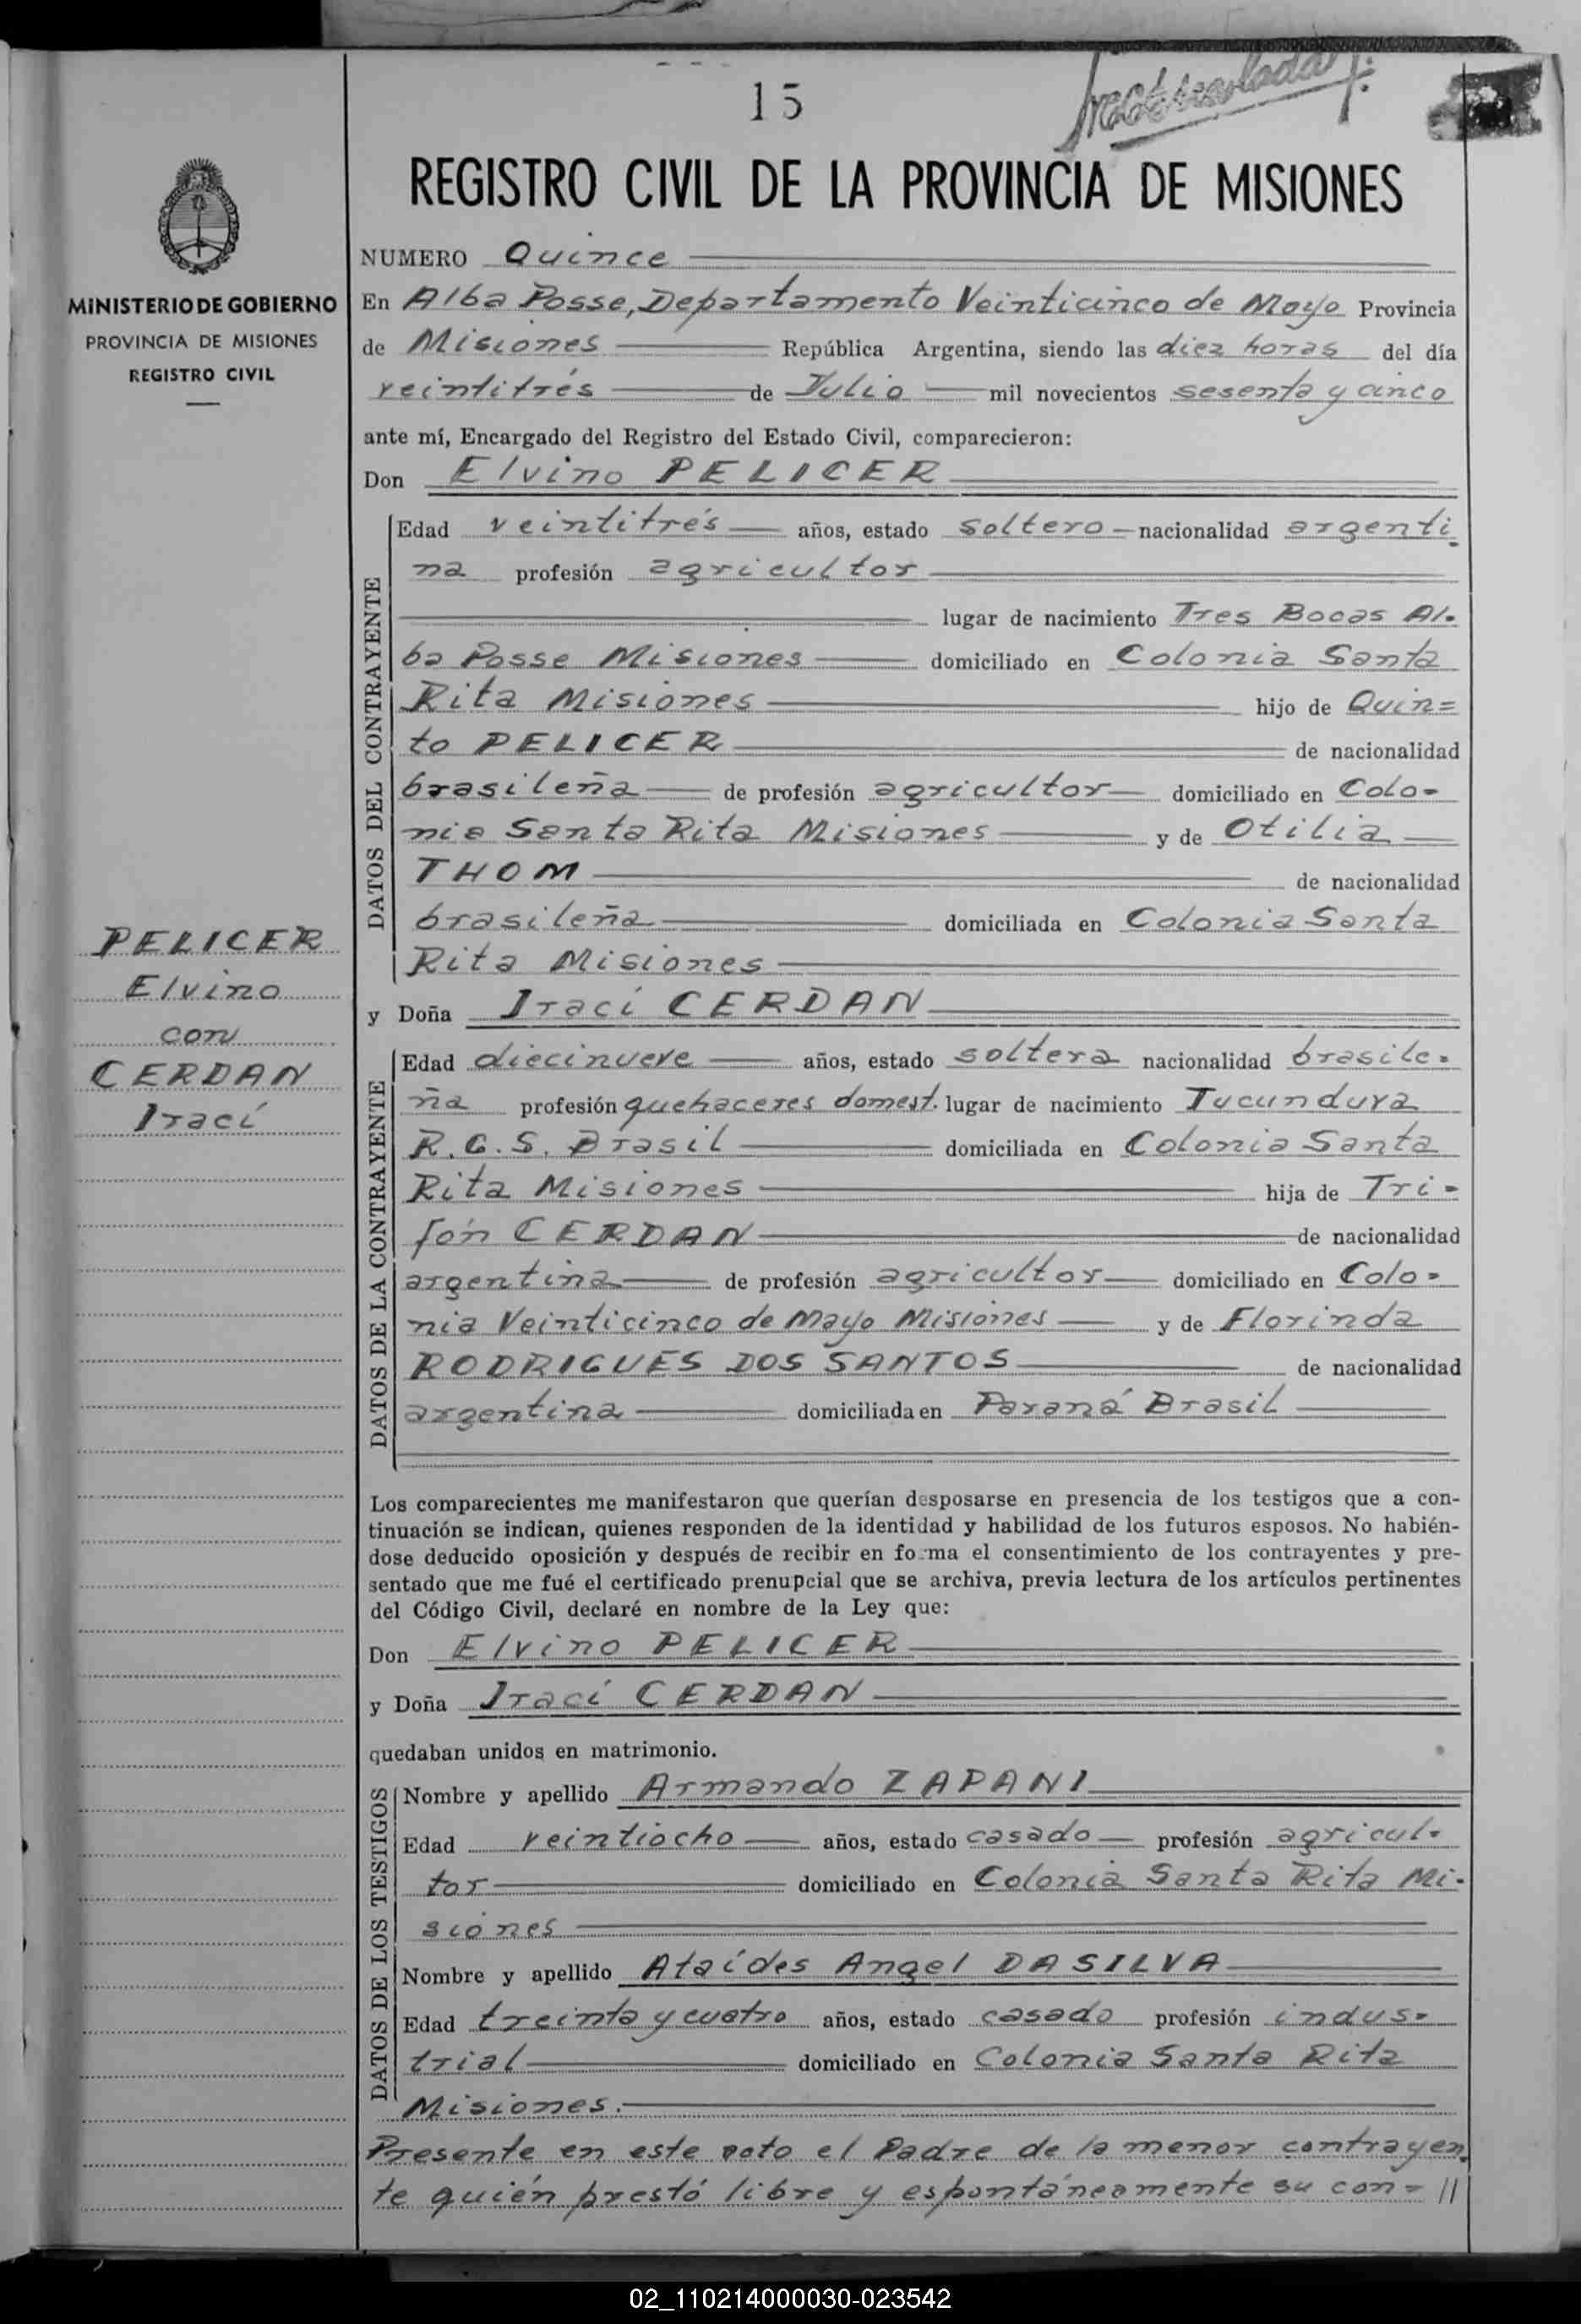 15
REGISTRO CIVIL DE LA PROVINCIA DE MISIONES
MINISTERIO DE GOBIERNO
PROVINCIA DE MISIONES
REGISTRO CIVIL
NUMERO Quince
En Alba Posse, Departamento Veinticinco de Mayo Provincia
de Misiones República Argentina, siendo las diez horas del día
veintitrés de Julio mil novecientos sesenta y cinco
ante mí, Encargado del Registro del Estado Civil, comparecieron:
Don Elvino PELICER
DATOS DEL CONTRAYENTE
Edad veintitrés años, estado soltero nacionalidad argenti-
na profesión agricultor
lugar de nacimiento Tres Bocas Al-
ba Posse Misiones domiciliado en Colonia Santa
Rita Misiones hijo de Quin=
to PELICER de nacionalidad
brasileña de profesión agricultor domiciliado en Colo-
nia Santa Rita Misiones y de Otilia
THOM de nacionalidad
brasileña domiciliada en Colonia Santa
Rita Misiones
PELICER
Elvino
con
CERDAN
Iraci
y Doña Iraci CERDAN
DATOS DE LA CONTRAYENTE
Edad diecinueve años, estado soltera nacionalidad brasile-
ña profesión quehaceres domest. lugar de nacimiento Tucunduva
R.G.S. Brasil domiciliada en Colonia Santa
Rita Misiones hija de Tri-
fón CERDAN de nacionalidad
argentina de profesión agricultor domiciliado en Colo-
nia Veinticinco de Mayo Misiones y de Florinda
RODRIGUES DOS SANTOS de nacionalidad
argentina domiciliada en Paraná Brasil
Los comparecientes me manifestaron que querían desposarse en presencia de los testigos que a con-
tinuación se indican, quienes responden de la identidad y habilidad de los futuros esposos. No habién-
dose deducido oposición y después de recibir en forma el consentimiento de los contrayentes y pre-
sentado que me fué el certificado prenupcial que se archiva, previa lectura de los artículos pertinentes
del Código Civil, declaré en nombre de la Ley que:
Don Elvino PELICER
y Doña Iraci CERDAN
quedaban unidos en matrimonio.
DATOS DE LOS TESTIGOS
Nombre y apellido Armando ZAPANI
Edad veintiocho años, estado casado profesión agricul-
tor domiciliado en Colonia Santa Rita Mi-
siones
Nombre y apellido Ataídes Angel DASILVA
Edad treinta y cuatro años, estado casado profesión indus-
trial domiciliado en Colonia Santa Rita
Misiones.
Presente en este acto el Padre de la menor contrayen-
te quién prestó libre y espontáneamente su con= //
02_110214000030-023542